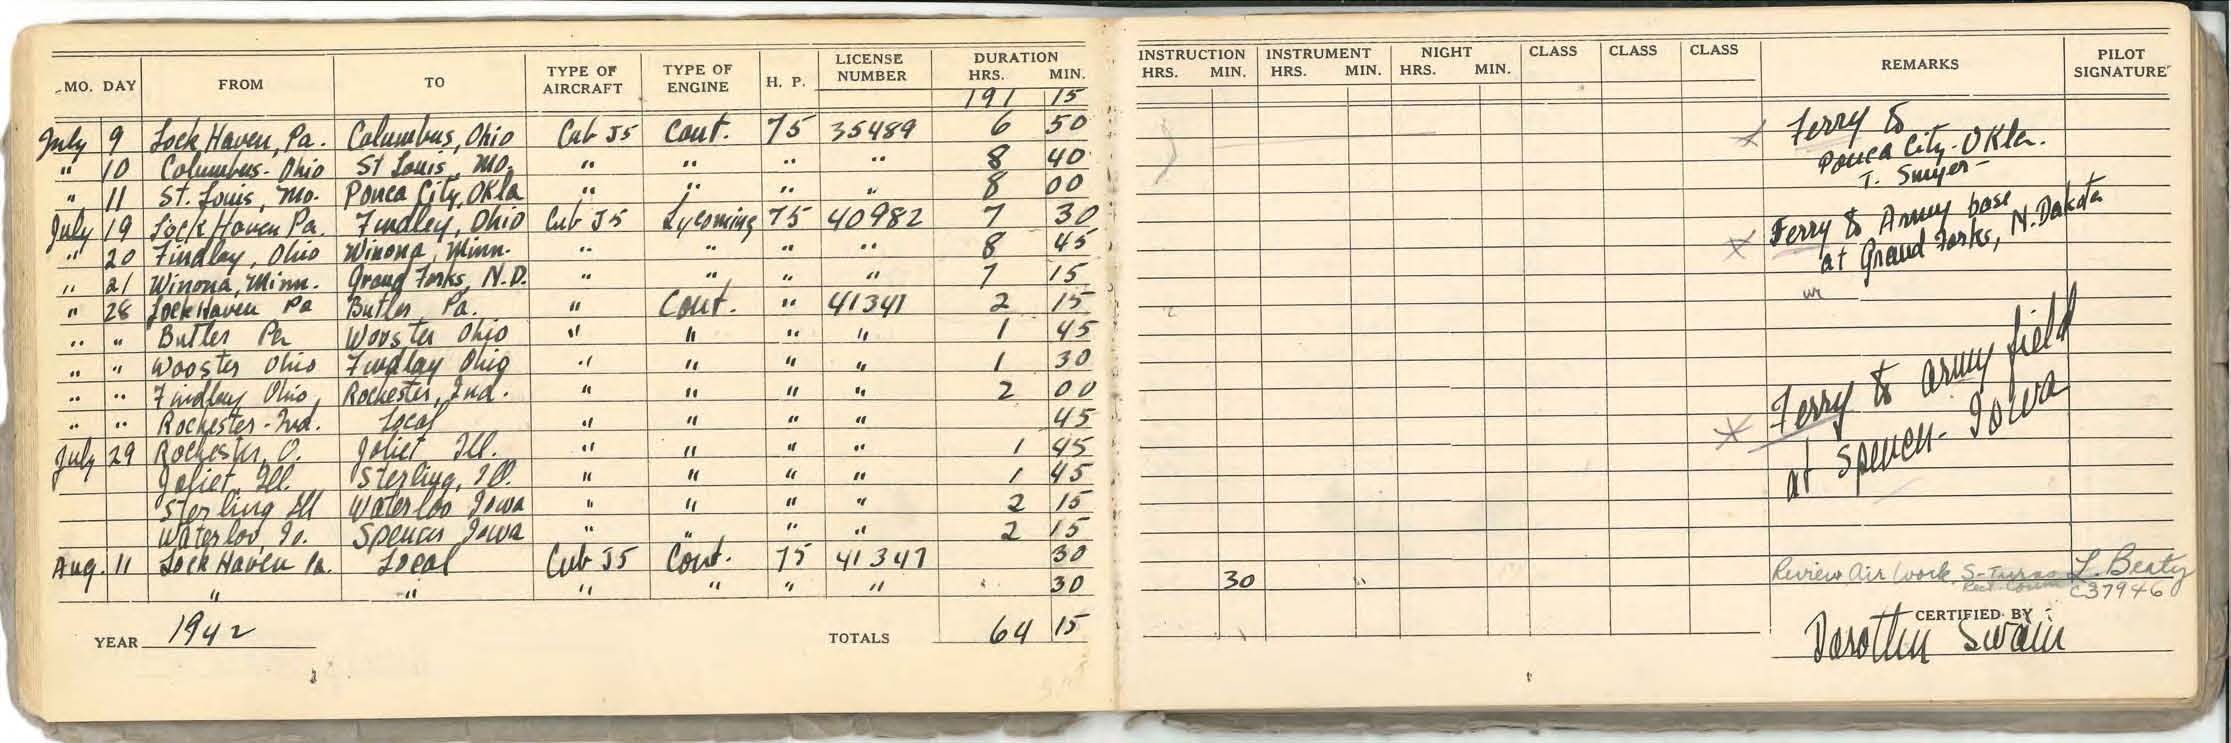 MO. DAY FROM TO TYPE OF AIRCRAFT TYPE OF ENGINE H. P. LICENSE NUMBER DURATION HRS. MIN. INSTRUCTION HRS. MIN. INSTRUMENT HRS. MIN. NIGHT HRS. MIN. CLASS CLASS CLASS REMARKS PILOT SIGNATURE
191 15
July 9 Lock Haven, Pa. Columbus, Ohio Cub J5 Cont. 75 35489 6 50 Ferry to
" 10 Columbus - Ohio St Louis, Mo. " " " " 8 40 Ponca City - Okla.
" 11 St. Louis, Mo. Ponca City, Okla " " " " 8 00 T.
July 19 Lock Haven Pa. Findley, Ohio Cub J5 Lycoming 75 40982 7 30 Ferry to Army base
" 20 Findlay, Ohio Winona, Minn. " " " " 8 45 at Grand Forks, N. Dakota
" 21 Winona, Minn. Grand Forks, N.D. " " " " 7 15
" 28 Lock Haven Pa Butler, Pa. " Cont. " 41347 2 15
" " Butler Pa Wooster Ohio " " " " 1 45
" " Wooster Ohio Findlay Ohio " " " " 1 30
" " Findlay Ohio, Rochester, Ind. " " " " 2 00 Ferry to army field
" " Rochester - Ind. Local " " " " 45 at Spencer - Iowa
July 29 Rochester, O. Joliet Ill. " " " " 1 45
Joliet, Ill. Sterling, Ill. " " " " 1 45
Sterling Ill Waterloo Iowa " " " " 2 15
Waterloo, Io. Spencer Iowa " " " " 2 15
Aug. 11 Lock Haven Pa. Local Cub J5 Cont. 75 41347 30
" " " " " " 30 30 " Review Air Work, S-Turns L. Beaty
Rect. C37946
YEAR 1942 TOTALS 64 15 CERTIFIED BY
Dorothy Swain